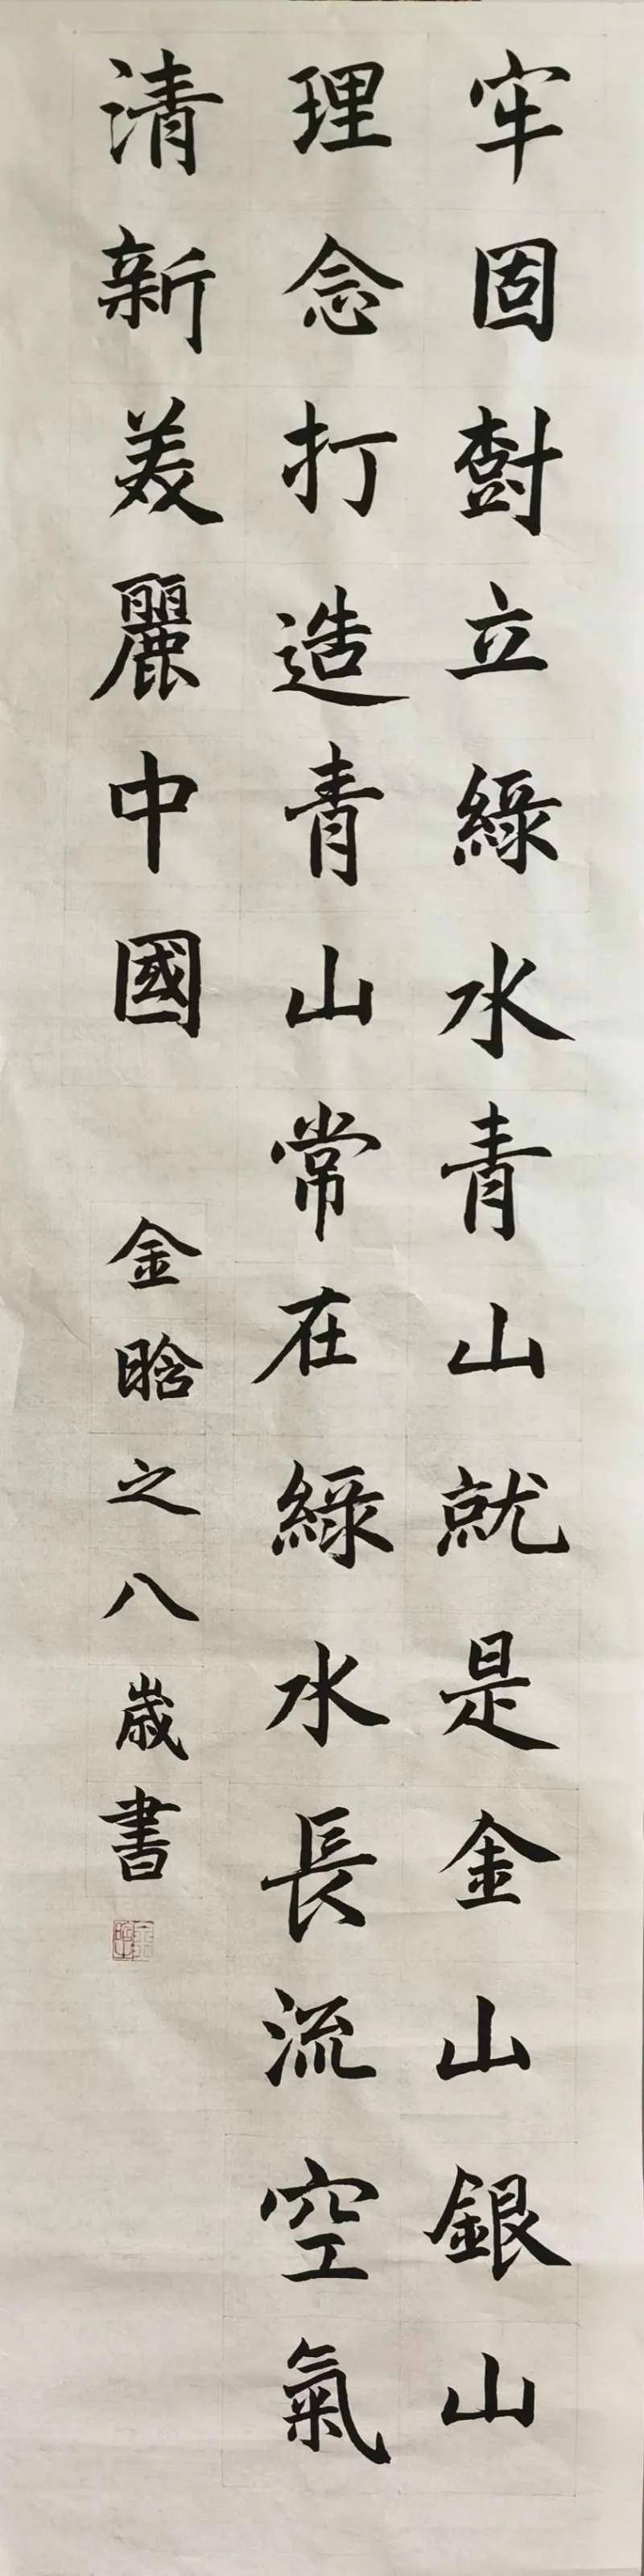 牢固樹立綠水青山就是金山銀山
理念打造青山常在綠水長流空氣
清新美麗中國
金晗之八歲書